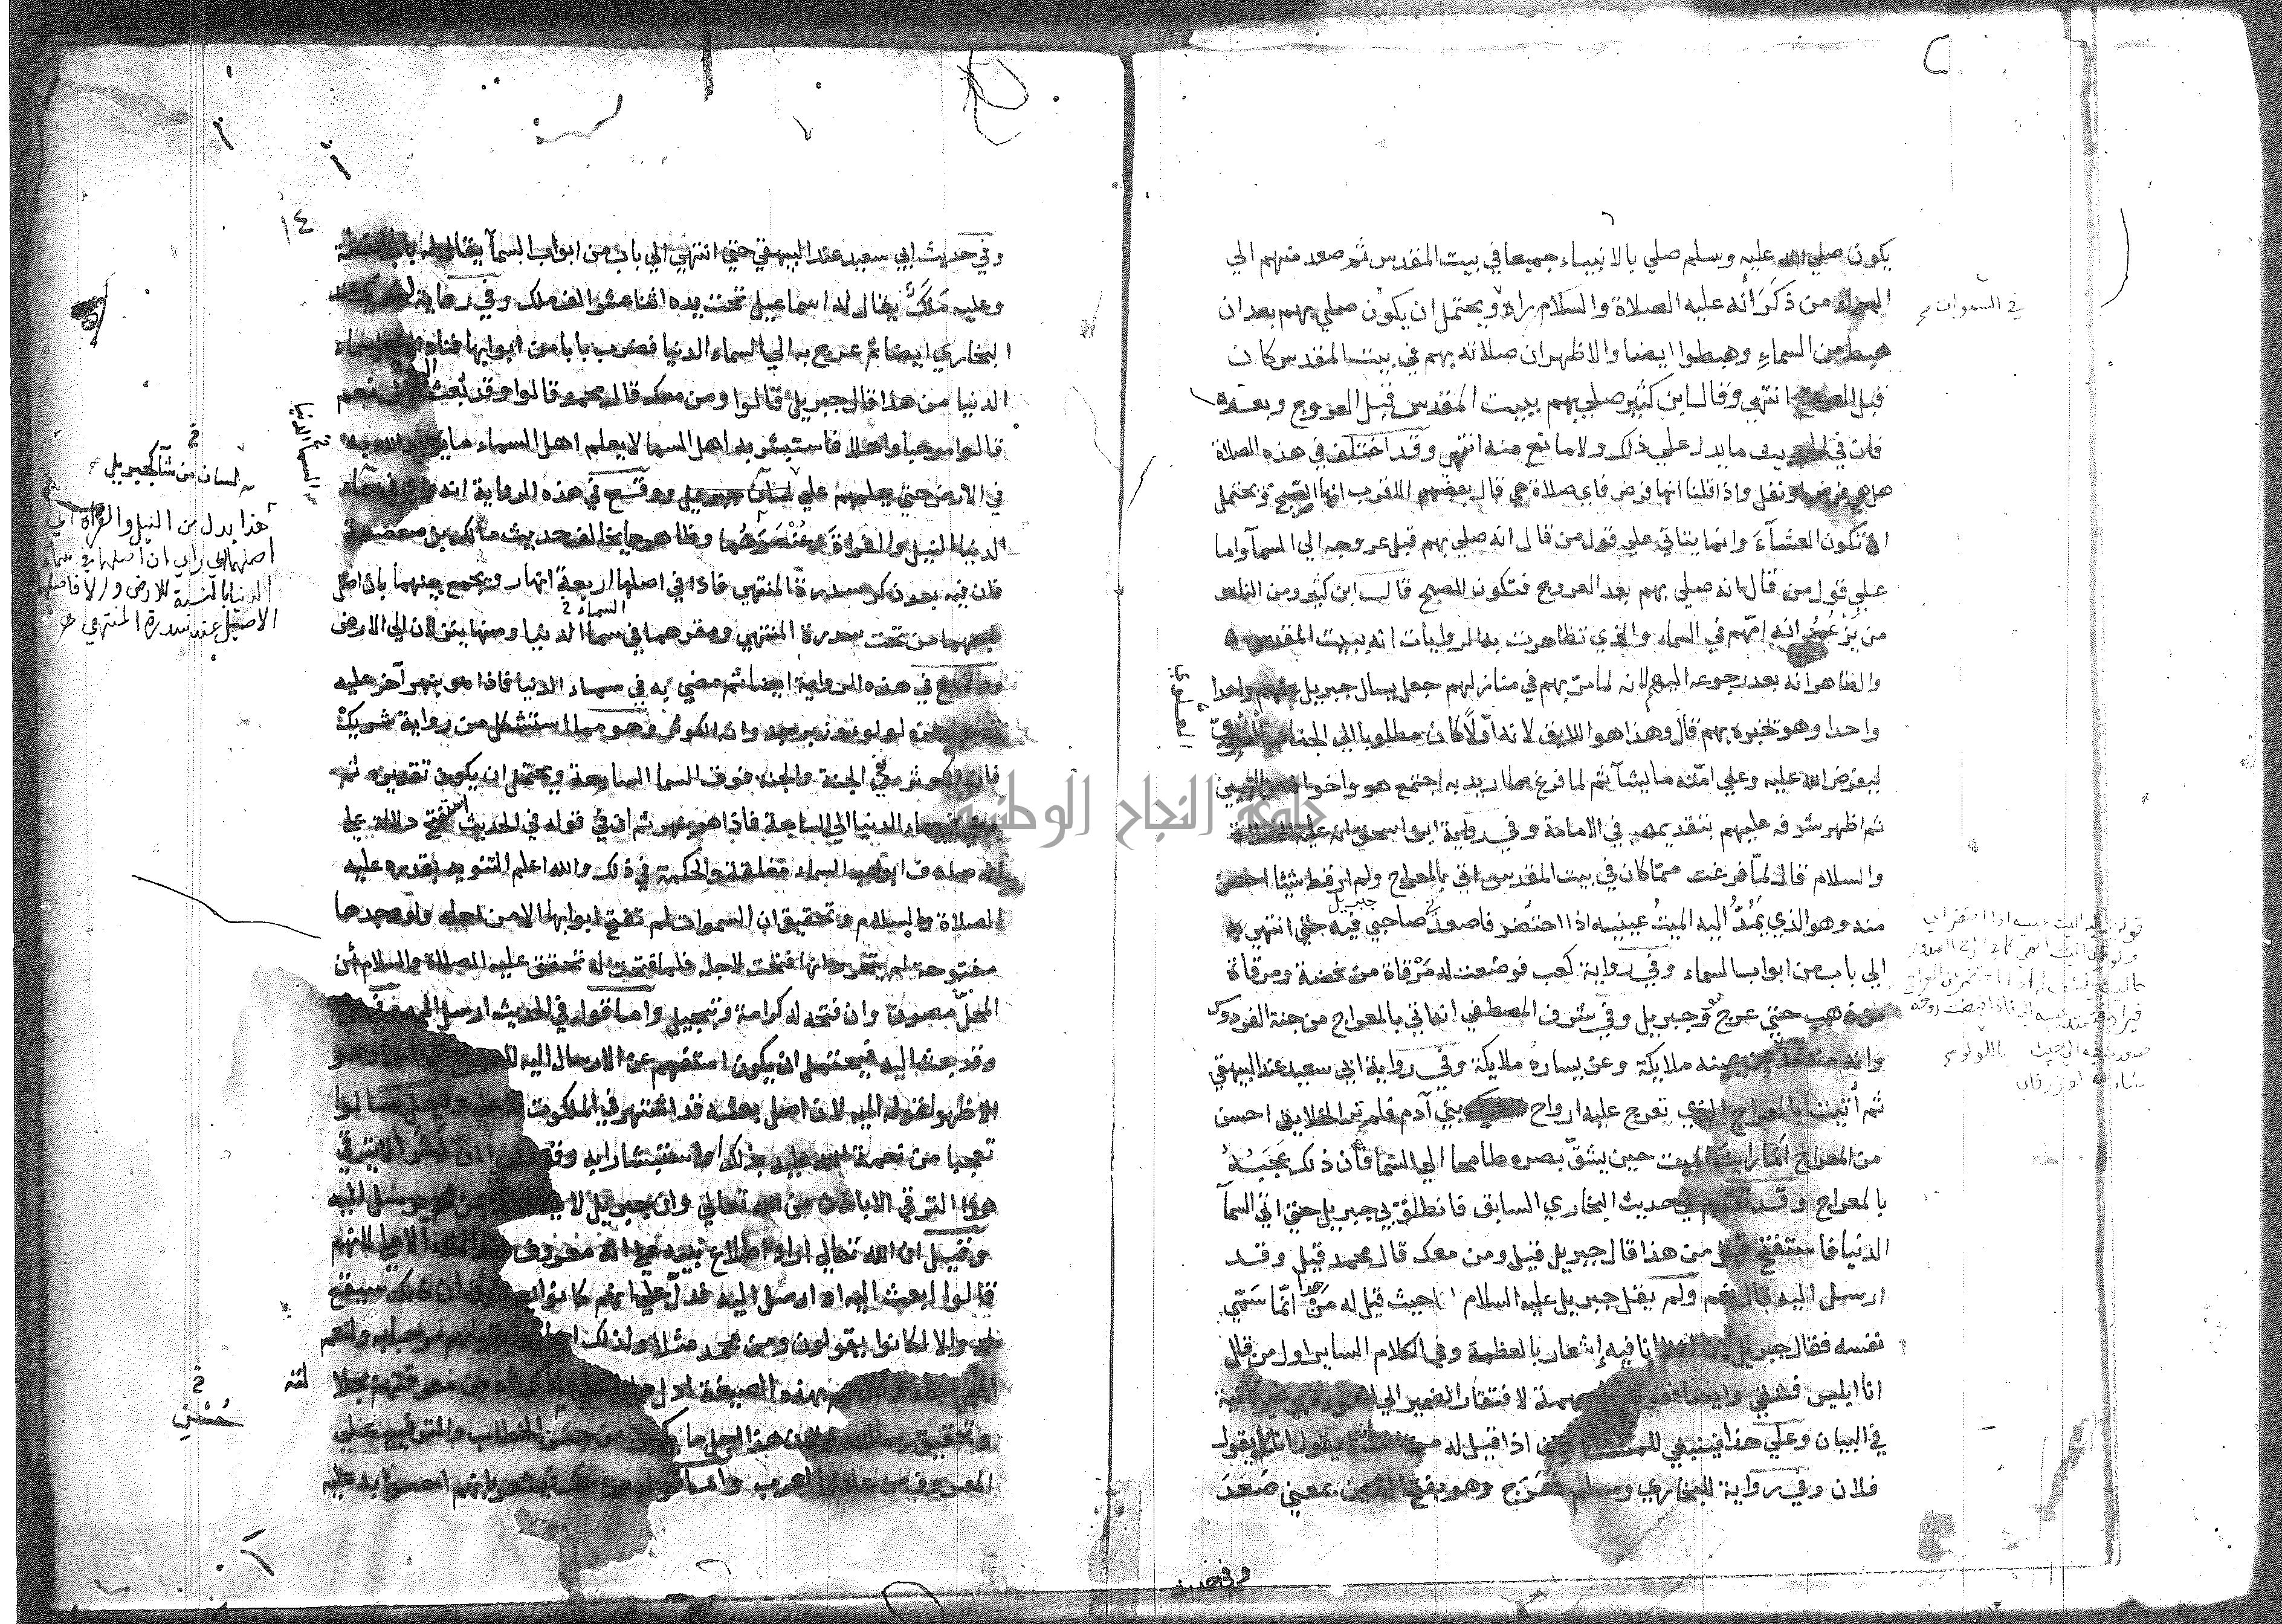 يكون صلي الله عليه وسلم صلي بالانبياء جميعا في بيت المقدس ثم صعد منهم الي
السماء من ذكر انه عليه الصلاة والسلام راه ويحتمل ان يكون صلي بهم بعد ان
هبط من السماء وهبطوا ايضا والاظهر ان صلاته بهم في بيت المقدس كان
قبل العروج انتهي وقال ابن كثير صلي بهم ببيت المقدس قبل العروج وبعده
فان في الحديث ما يدل علي ذلك ولا مانع منه انتهي وقد اختلف في هذه الصلاة
هل هي فرض او نفل واذا قلنا انها فرض فاي صلاة هي قال بعضهم الاقرب انها الصبح ويحتمل
ان تكون العشاء وانما يتاتي علي قول من قال انه صلي بهم قبل عروجه الي السمآ واما
علي قول من قال انه صلي بهم بعد العروج فتكون الصبح قال ابن كثير ومن الناس
من يزعم انه امّهم في السماء والذي تظاهرت به الروايات انه ببيت المقدس
والظاهر انه بعد رجوعه اليهم لانه لما مر بهم في منازلهم جعل يسال جبريل عنهم واحدا
واحدا وهو يخبره بهم قال وهذا هو اللايق لانه اولا كان مطلوبا الي الجناب
ليفرض الله عليه وعلي امته ما يشآ ثم لما فرغ مما اريد به اجتمع هو واخوانه من النبيين
ثم اظهر شرفه عليهم بتقديمه في الامامة وفي رواية ابن اسحق انه عليه الصلاة
والسلام قال لما فرغت مما كان في بيت المقدس اتي بالمعراج ولم ار قط شيئا احسن
منه وهو الذي يمد اليه الميت عينيه اذا احتضر فاصعدني صاحبي فيه حتي انتهي
الي باب من ابواب السماء وفي رواية كعب فوضعت له مرقاة من فضة ومرقاة
من ذهب حتي عرج هو وجبريل وفي شرف المصطفي انه اتي بالمعراج من جنة الفردوس
وانه منضد عن يمينه ملايكة وعن يساره ملايكة وفي رواية ابي سعيد عند البيهقي
ثم أتيت بالمعراج الذي تعرج عليه ارواح بني آدم فلم تر الخلايق احسن
من المعراج اما رايت الميت حين يشق بصره طامحا الي السما فان ذلك عجبه
بالمعراج وقد تقدم في حديث البخاري السابق فانطلق بي جبريل حتي اتي السمآ
الدنيا فاستفتح قيل من هذا قال جبريل قيل ومن معك قال محمد قيل وقد
ارسل اليه قال نعم ولم يقل جبريل عليه السلام انا حيث قيل له من هذا انما سمي
نفسه فقال جبريل لان لفظ انا فيه إشعار بالعظمة وفي الكلام الساير اول من قال
انا ابليس فشقي وايضا فقوله مبهمة لافتقار الضمير الي
في البيان وعلي هذا فينبغي اذا قيل له من لا يقول انا بل يقول
فلان وفي رواية للبخاري ومسلم فعرج وهو بفتح العين بمعني صعد
في السموات
وفي حديث
١٤
وفي حديث ابي سعيد عند البيهقي حتي انتهي الي باب من ابواب السمآ يقال له باب الحفظة
وعليه ملك يقال له اسماعيل تحت يده اثنا عشر الف ملك وفي رواية شريك عند
البخاري ايضا ثم عرج به الي السماء الدنيا فضرب بابا من ابوابها فناداه اهل سماء
الدنيا من هذا قال جبريل قالوا ومن معك قال محمد قالوا وقد بعث اليه قال نعم
قالوا مرحبا واهلا فاستبشر به اهل السما لا يعلم اهل السماء ما يريد الله به
في الارض حتي يعلمهم علي لسان جبريل ووقع في هذه الرواية انه راي في سماء
الدنيا النيل والفراة وعنصرهما وظاهره يخالف حديث مالك بن صعصعة
فان فيه بعد ذكر سدرة المنتهي فاذا في اصلها اربعة انهار ويجمع بينهما بان اصل
نبعهما من تحت سدرة المنتهي ومقرهما في سما الدنيا ومنها ينزلان الي الارض
ووقع في هذه الرواية ايضا ثم مضي به في سماء الدنيا فاذا هو بنهر آخر عليه
قصر من لولو وزبرجد وانه الكوثر وهو مما استشكل من رواية شريك
فان الكوثر في الجنة والجنة فوق السما السابعة ويحتمل ان يكون تقديره ثم
مضي في سماء الدنيا الي السابعة فاذا هو بنهر ثم ان في قوله في الحديث استفتح دلالة علي
انه صادف ابواب السماء مغلقة والحكمة في ذلك والله اعلم التنويه بقدره عليه
الصلاة والسلام وتحقيق ان السموات لم تفتح ابوابها الا من اجله ولو وجدها
مفتوحة لم يتحرر انها فتحت لاجله فلما فتحت له تحقق عليه الصلاة والسلام أن
المحل مصون وان فتحه له كرامة وتبجيل واما قوله في الحديث ارسل اليه
وقد بعث اليه فيحتمل ان يكون استفهم عن الارسال اليه للعروج الي السما وهو
الاظهر لقوله اليه لان اصل بعثه قد اشتهر في الملكوت الاعلي وقيل سالوا
تعجبا من نعمة الله عليه بذلك او استبشارا به وقد علموا ان بشرا لا يترقي
هذا الترقي الا باذن من الله تعالي وان جبريل لا يصعد بمن لم يرسل اليه
وقيل ان الله تعالي اراد اطلاع نبيه علي انه معروف عند الملاء الاعلي لانهم
قالوا ابعث اليه او ارسل اليه فدل علي انهم كانوا يعرفون ان ذلك سيقع
له والا لكانوا يقولون ومن محمد مثلا ولذلك اجابوا بقولهم مرحبا به ولنعم
المجي جاء وكلامهم بهذه الصيغة ادل دليل علي ما ذكرناه من معرفتهم بجلا
وتحقيق رسالته ولان هذا اجل ما يكون من حسن الخطاب والترفيع علي
المعروف من عادة العرب واما قولهم من معك فيشعر بانهم احسوا به عليه
ه لسان من شآ كجبريل
هذا بدل من النيل والفراة اي
اصلهما اي راي ان اصلها في سماء
الدنيا بالنسبة للارض والا فاصلها
الاصيل عند سدرة المنتهي
حسن